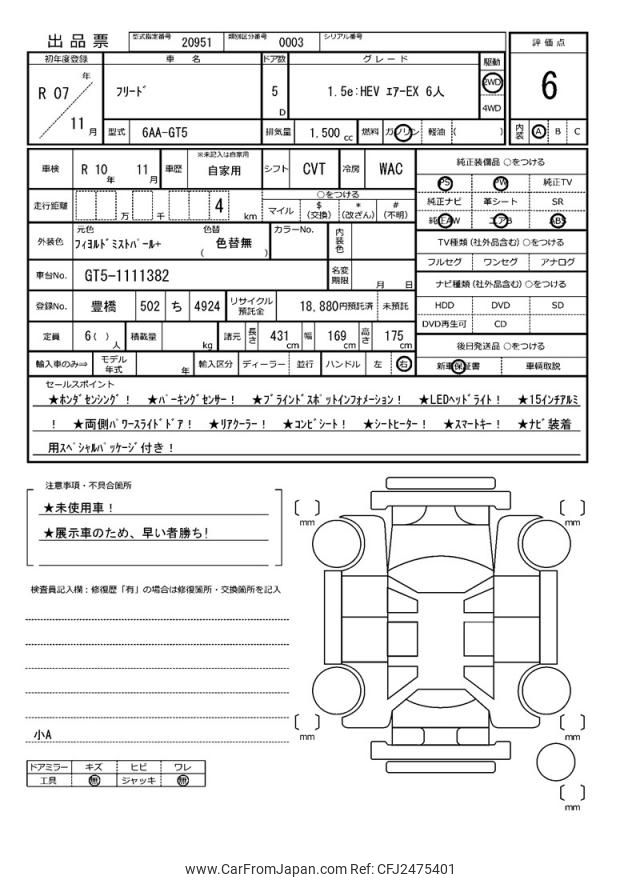 出品票 型式指定番号 20951 類別区分番号 0003 シリアル番号
初年度登録 車 名 ドア数 グレード 駆動 評価点
R 07 年 11 月 フリード 5 D 1.5e:HEV エアーEX 6人 2WD 4WD 6
型式 6AA-GT5 排気量 1,500 cc 燃料 ガソリン 軽油 ( ) 内装 A B C
車検 R 10 年 11 月 車歴 ※未記入は自家用 自家用 シフト CVT 冷房 WAC 純正装備品 ○をつける
PS PW 純正TV
走行距離 万 千 4 km ○をつける マイル $ (交換) * (改ざん) # (不明) 純正ナビ 革シート SR
純正AW エアB ABS
外装色 元色 フィヨルドミストパール+ 色替 ( 色替無 ) カラーNo. 内装色 TV種類 (社外品含む) ○をつける
フルセグ ワンセグ アナログ
車台No. GT5-1111382 名変期限 月 日 ナビ種類 (社外品含む) ○をつける
登録No. 豊橋 502 ち 4924 リサイクル預託金 18,880円預託済 未預託 HDD DVD SD
DVD再生可 CD
定員 6( ) 人 積載量 kg 諸元 長さ 431 cm 幅 169 cm 高さ 175 cm 後日発送品 ○をつける
輸入車のみ⇒ モデル年式 年 輸入区分 ディーラー 並行 ハンドル 左 右 新車保証書 車輌取説
セールスポイント
★ホンダセンシング! ★パーキングセンサー! ★ブラインドスポットインフォメーション! ★LEDヘッドライト! ★15インチアルミ
! ★両側パワースライドドア! ★リアクーラー! ★コンビシート! ★シートヒーター! ★スマートキー! ★ナビ装着
用スペシャルパッケージ付き!
注意事項・不具合箇所
★未使用車!
★展示車のため、早い者勝ち!
検査員記入欄:修復歴「有」の場合は修復箇所・交換箇所を記入
小A
ドアミラー キズ ヒビ ワレ
工具 無 ジャッキ 無
mm
mm
mm
mm
mm
www.CarFromJapan.com Ref: CFJ2475401